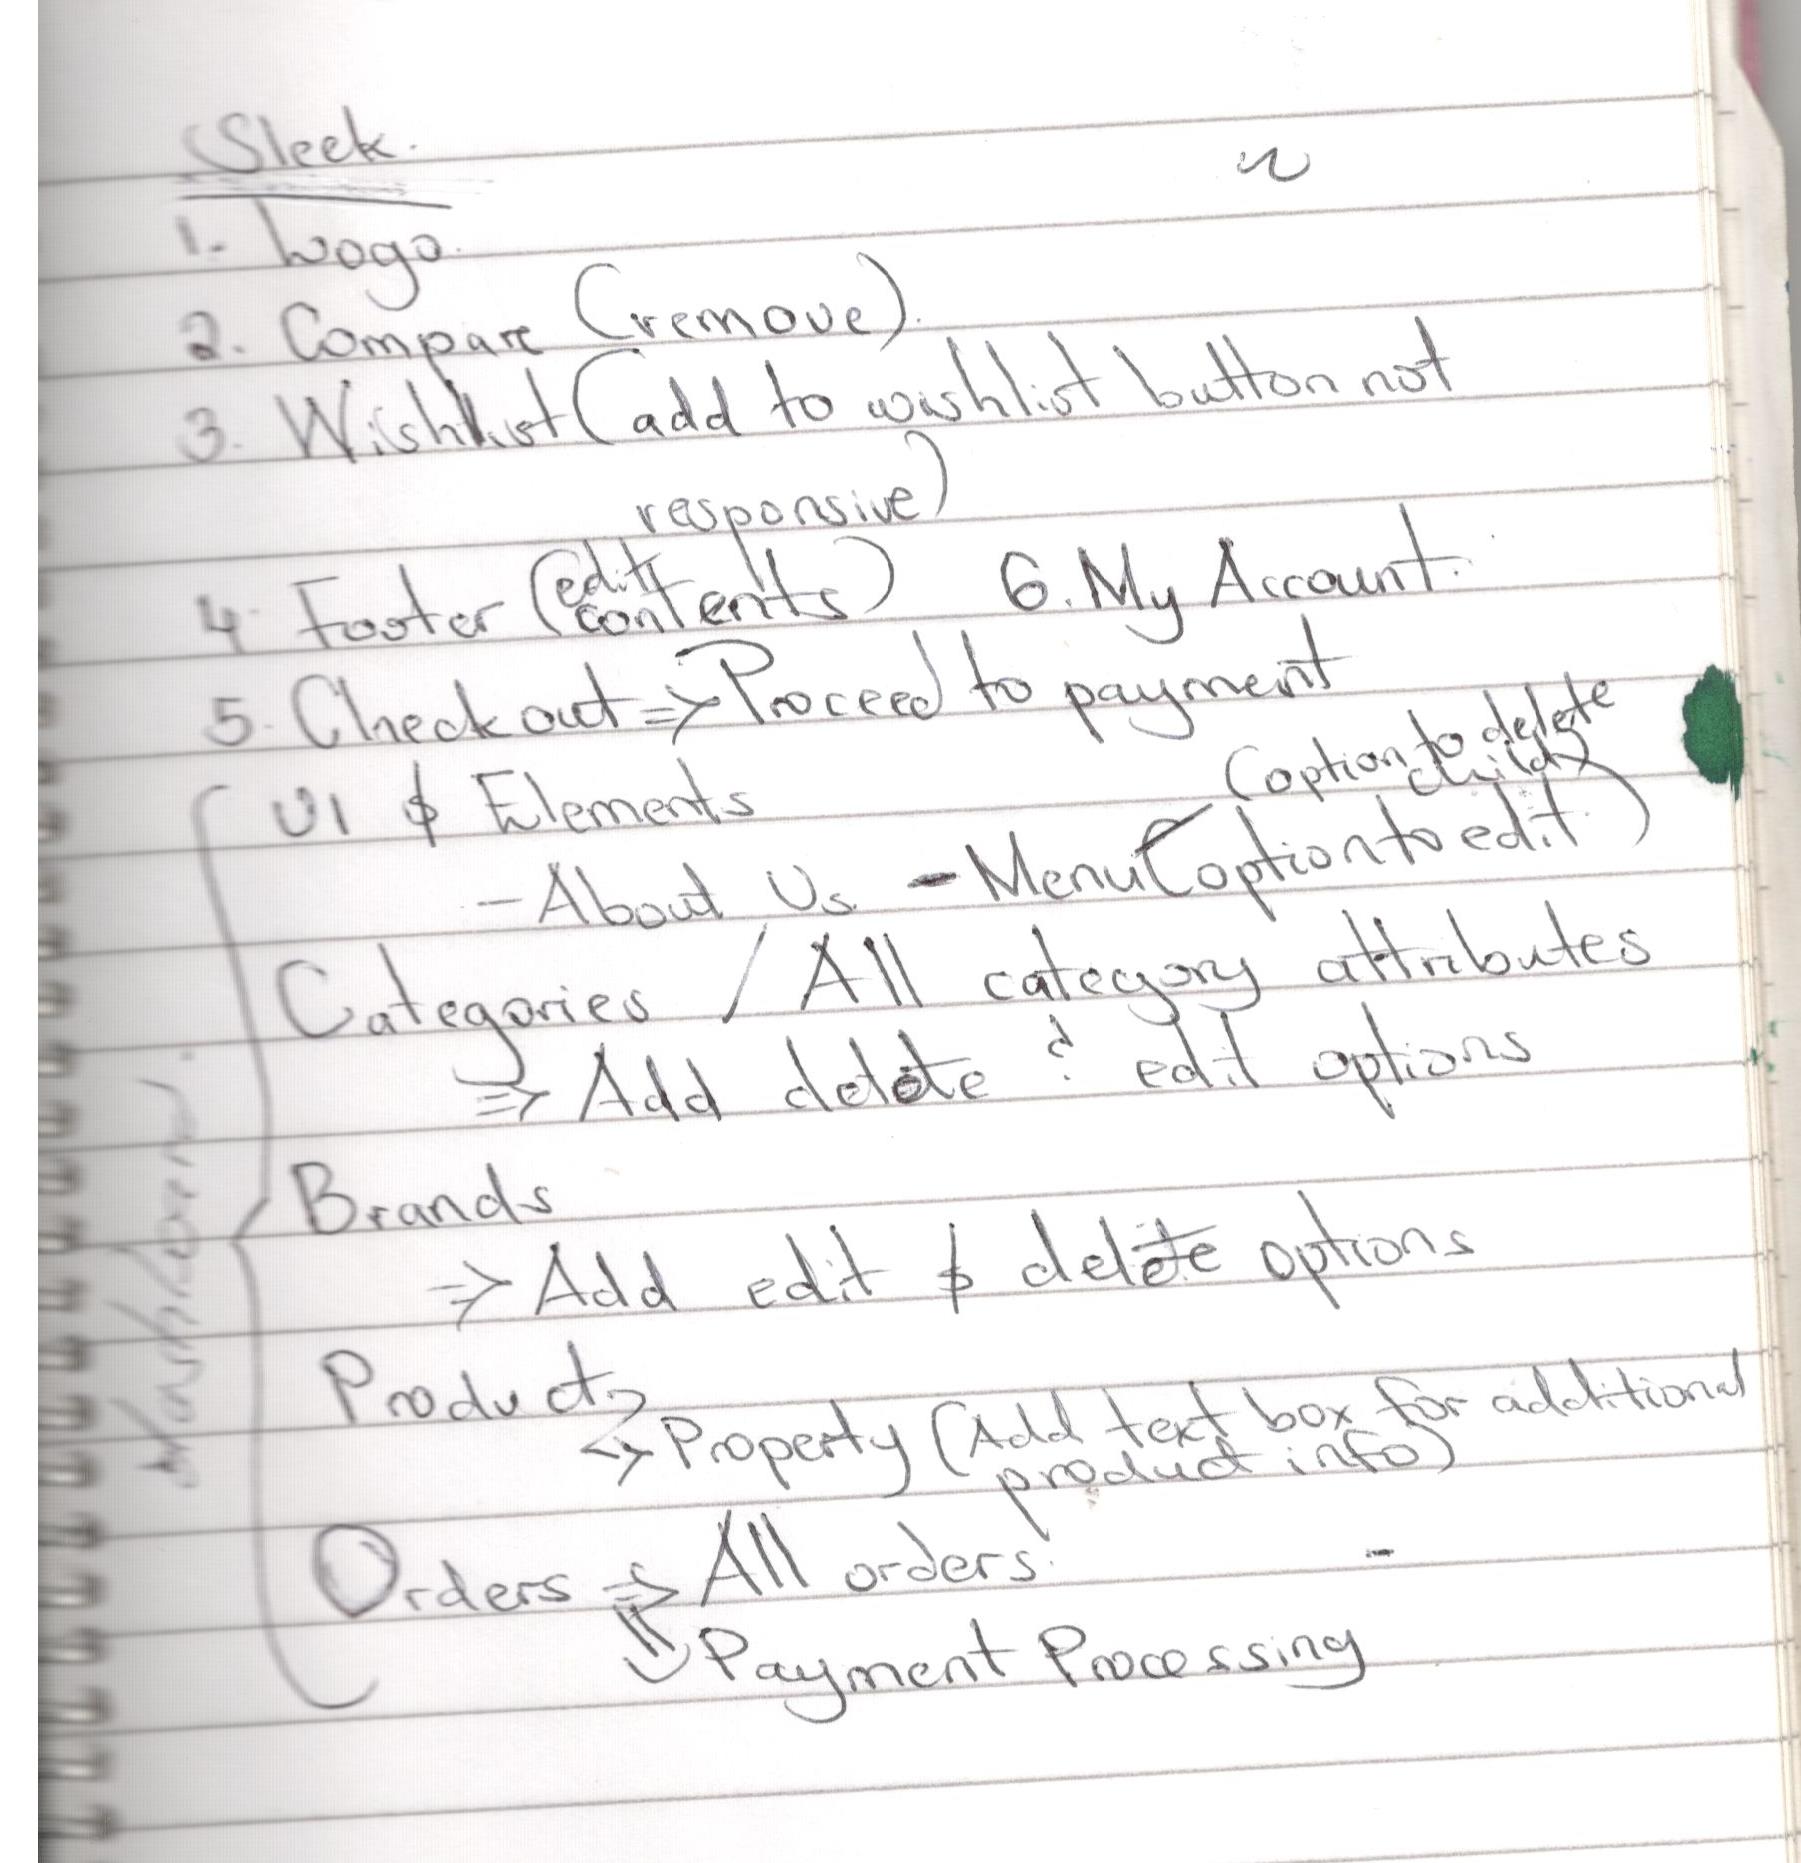 Sleek.
1. Logo.
2. Compare (remove).
3. Wishlist (add to wishlist button not
responsive)
4. Footer (edit contents) 6. My Account.
5. Checkout => Proceed to payment
UI & Elements (option to delete child)
- About Us - Menu (option to edit)
Categories / All category attributes
=> Add delete & edit options
Brands
=> Add edit & delete options
Products
=> Property (Add text box for additional
product info)
Orders => All orders
=> Payment Processing
Dashboard.